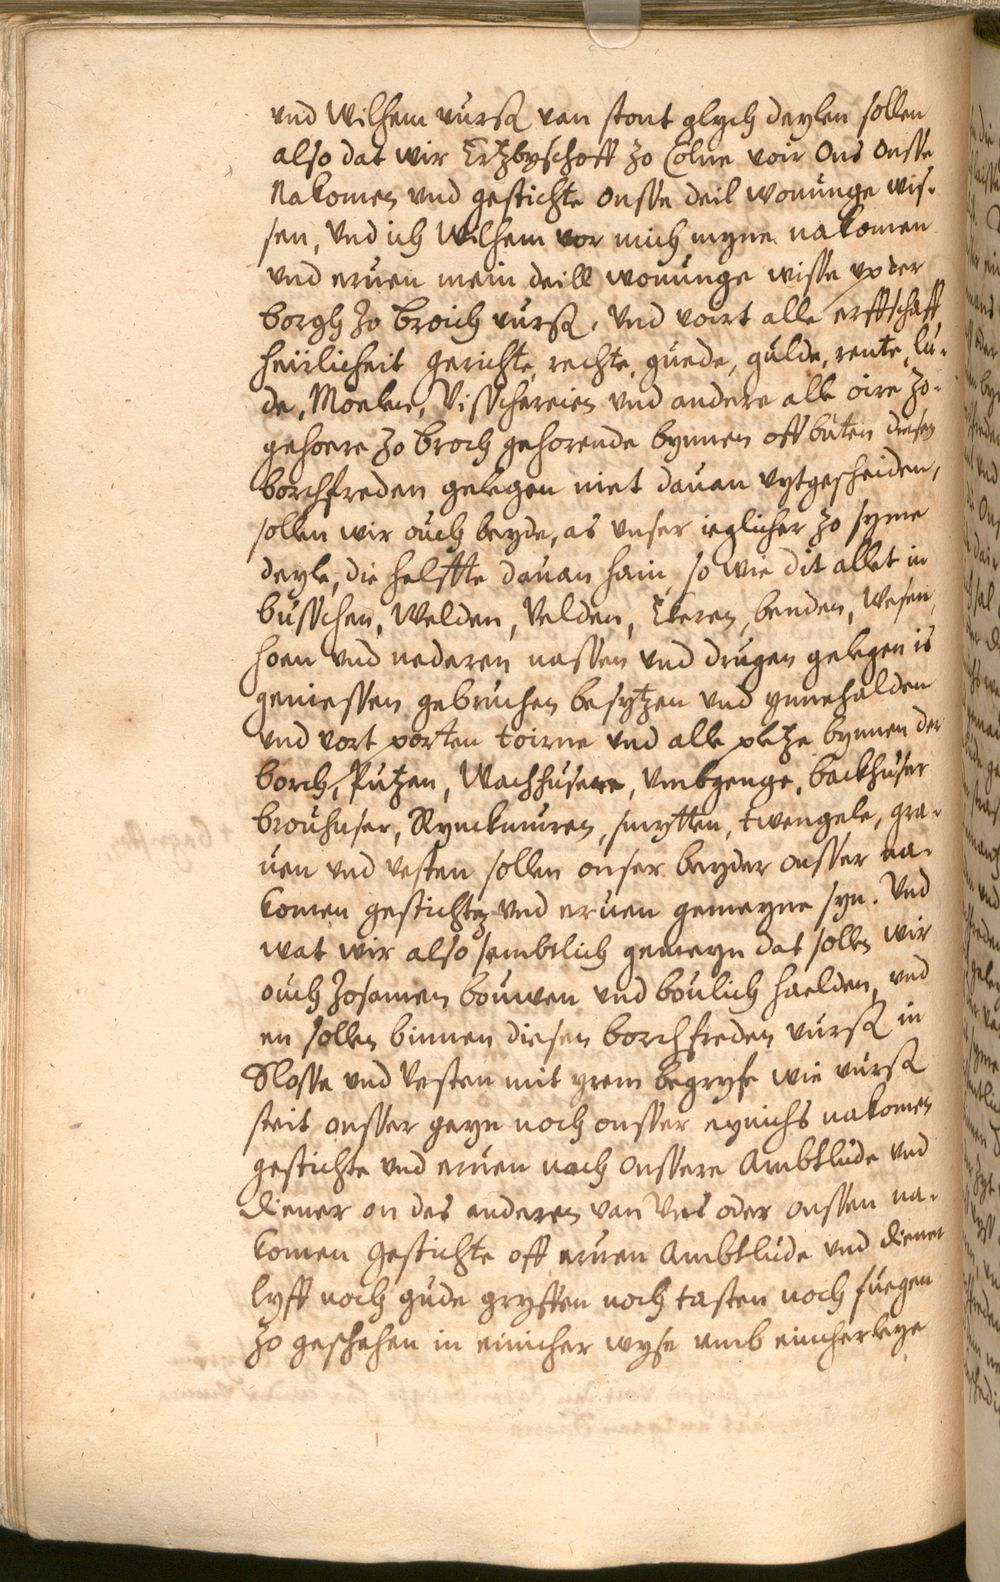 vnd Wilhem vurß van stont glych deylen sollen
also dat wir Ertzbyschoff zo Colne voir Ons Onsse
Nakomen vnd gestichte onsse deil wonünge wis-
sen, Vnd ich Wilhem vor mich myne nakomen
vnd eruen mein deill wonünge wisse vp der
borgh zo broich vurß, Vnd voirt alle erffschafft
heirlicheit gerichte, rechte, güede, gülde, rente, lü-
de, Moelen, Visschereien vnd andere alle oire zo-
gehoere zo broch gehorende bynnen off büten diesen
borchfreden gelegen niet dauan vytgescheiden,
sollen wir oüch beyde, as vnser ieglicher zo syme
deyle, die helffte dauan hain, so wie dit allet in
büsschen, Welden, Velden, Ekeren, benden, Wesen,
hoen vnd nederen nassen vnd drugen gelegen is
geniessen gebruchen besytzen vnd ynnehalden
vnd vort porten toirne vnd alle pletze bynnen der
borch, Pützen, Wachhüsere, vmbgenge, backhüser
broühuser, Rynckmuren, smytten, twengele, gra-
uen vnd vesten sollen onser beyder onsser na-
komen gestichte vnd eruen gemeyne syn. Vnd
wat wir also sembtlich gemeyn dat sollen wir
oüch zosamen boüwen vnd boülich haelden, vnd
en sollen binnen diesen borchfreden vurß in
Slosse vnd Vesten mit yrem begryfe wie vurß
steit onsser geyn noch onsser eynichs nakomen
gestichte vnd eruen noch Onssere Ambtlüde vnd
diener an des anderen van Vns oder onssen na-
komen gestichte off eruen Ambtlüde vnd diener
lyff noch güde gryffen noch tasten noch füegen
zo geschehen in einicher wyse vmb eincherleye